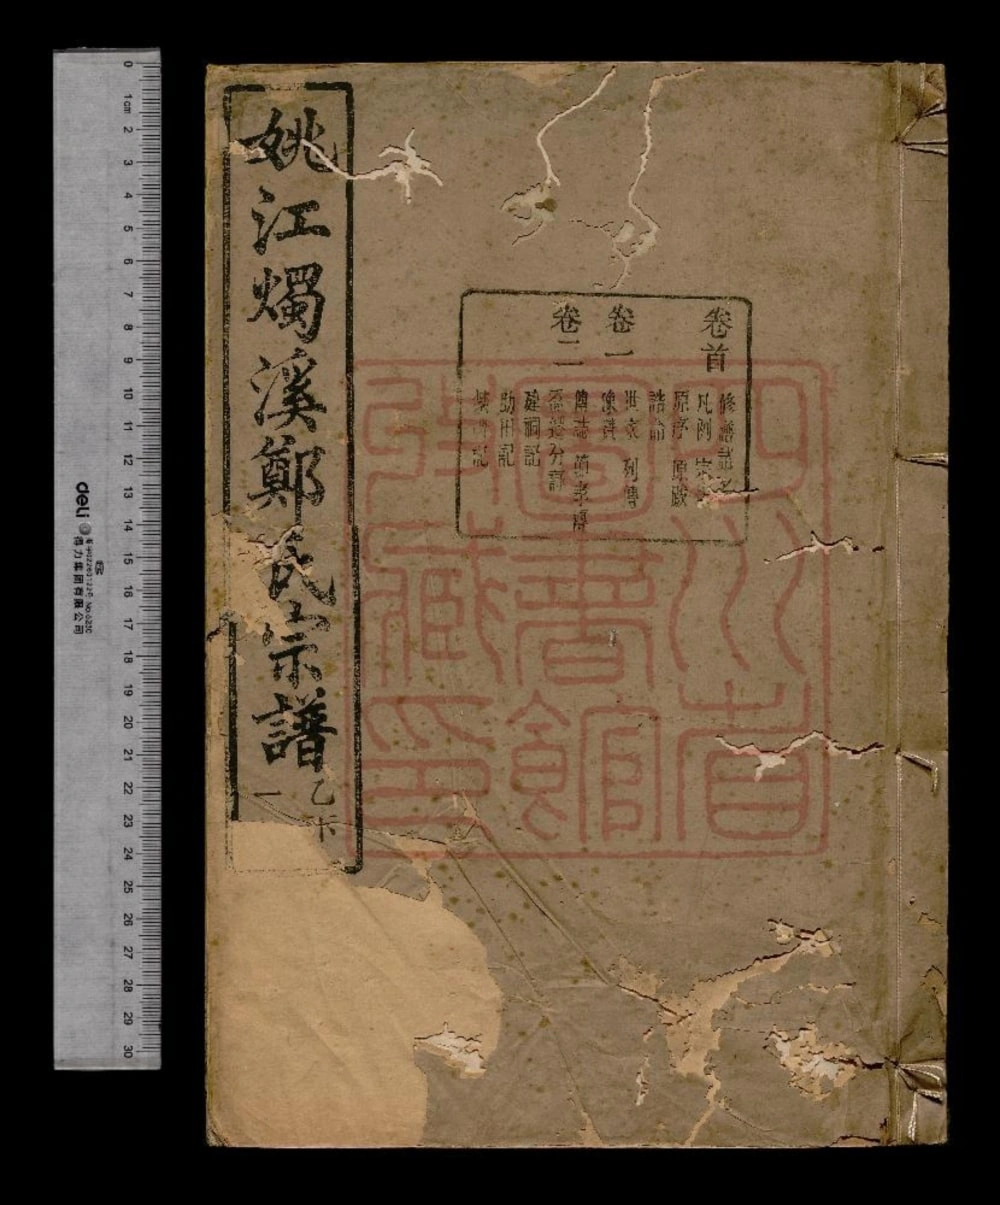 姚江燭溪鄭氏宗譜
乙
一
卷首
修譜
凡例
原序 原跋
誥命
卷一
世家 列傳
像贊
卷二
傳誌 節孝傳
建祠記
助田記
四川省
圖書館
藏印
0 1cm 2 3 4 5 6 7 8 9 10 11 12 13 14 15 16 17 18 19 20 21 22 23 24 25 26 27 28 29 30
deli
得力集团有限公司
No.6230